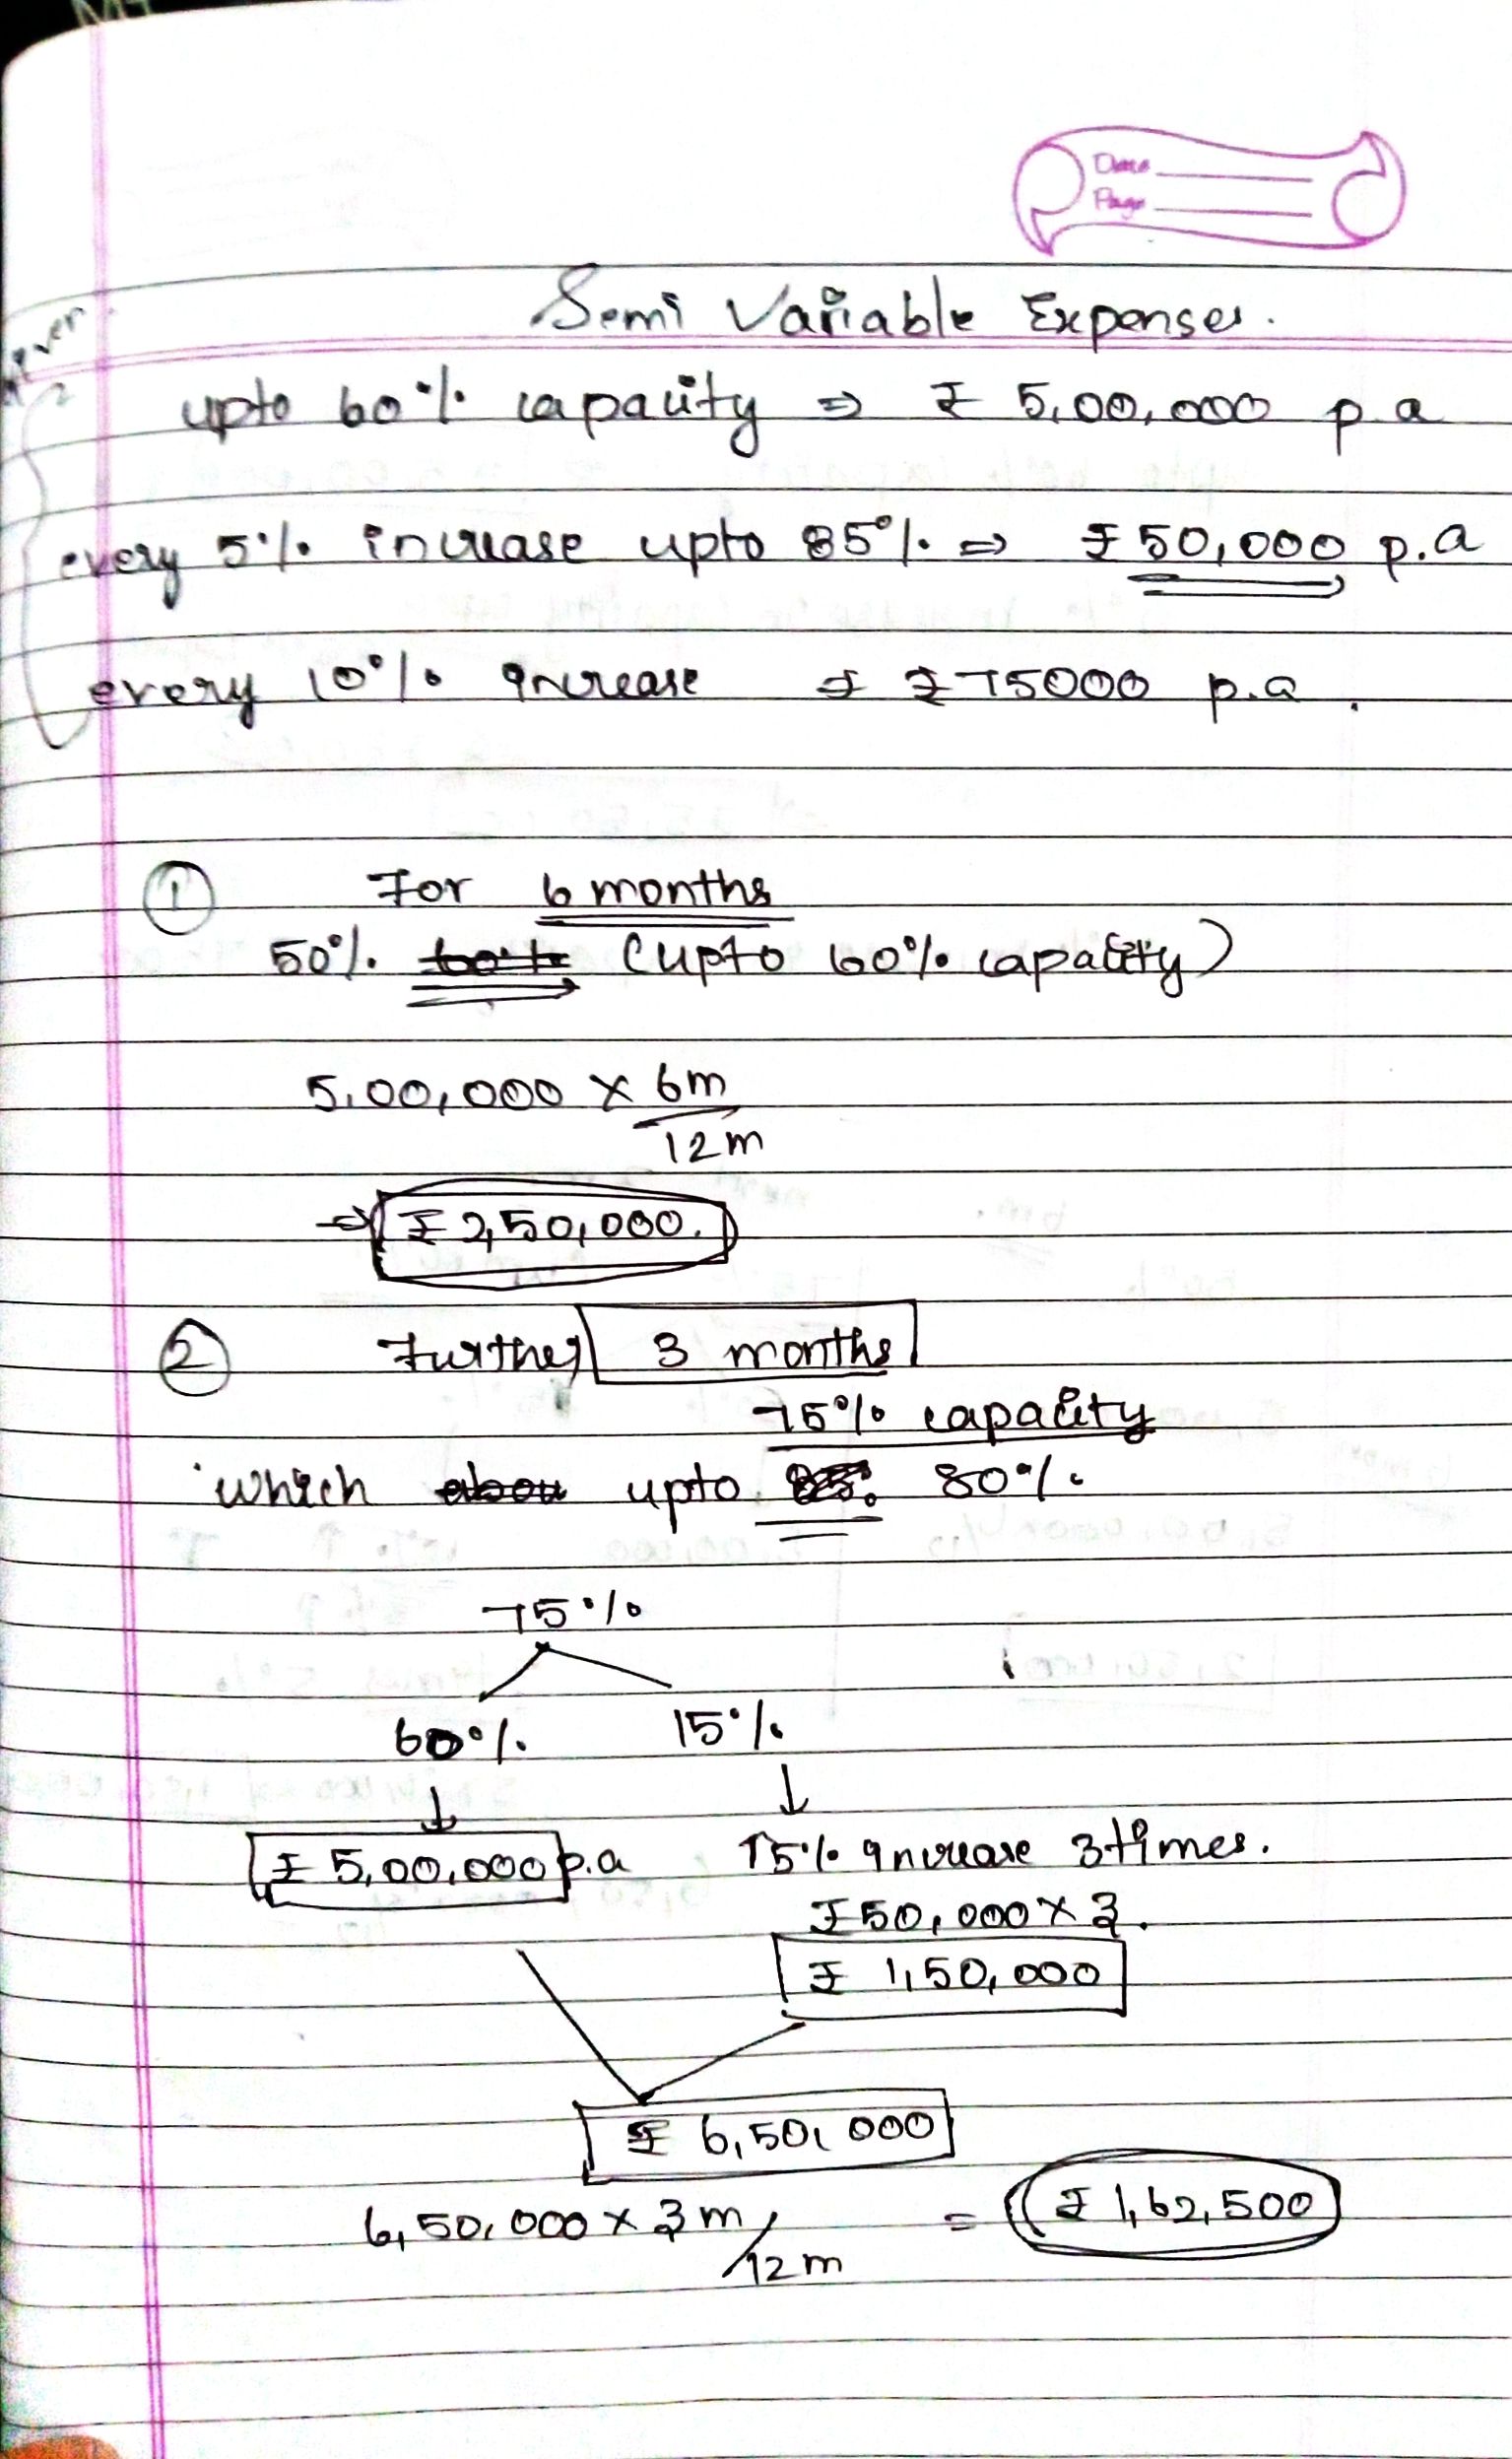 Date
Page
Semi Variable Expenses.
upto 60% capacity ⇒ ₹ 5,00,000 p.a
every 5% increase upto 85% ⇒ ₹ 50,000 p.a
every 10% increase ⇒ ₹ 75000 p.a.
① For 6 months
50% (upto 60% capacity)
5,00,000 × 6m
12m
⇒ ₹ 2,50,000.
② Further 3 months
75% capacity
which upto 80%.
75%
60% 15%
↓ ↓
₹ 5,00,000 p.a ↑5% increase 3times.
₹ 50,000 × 3.
₹ 1,50,000
₹ 6,50,000
6,50,000 × 3m/12m = ₹ 1,62,500